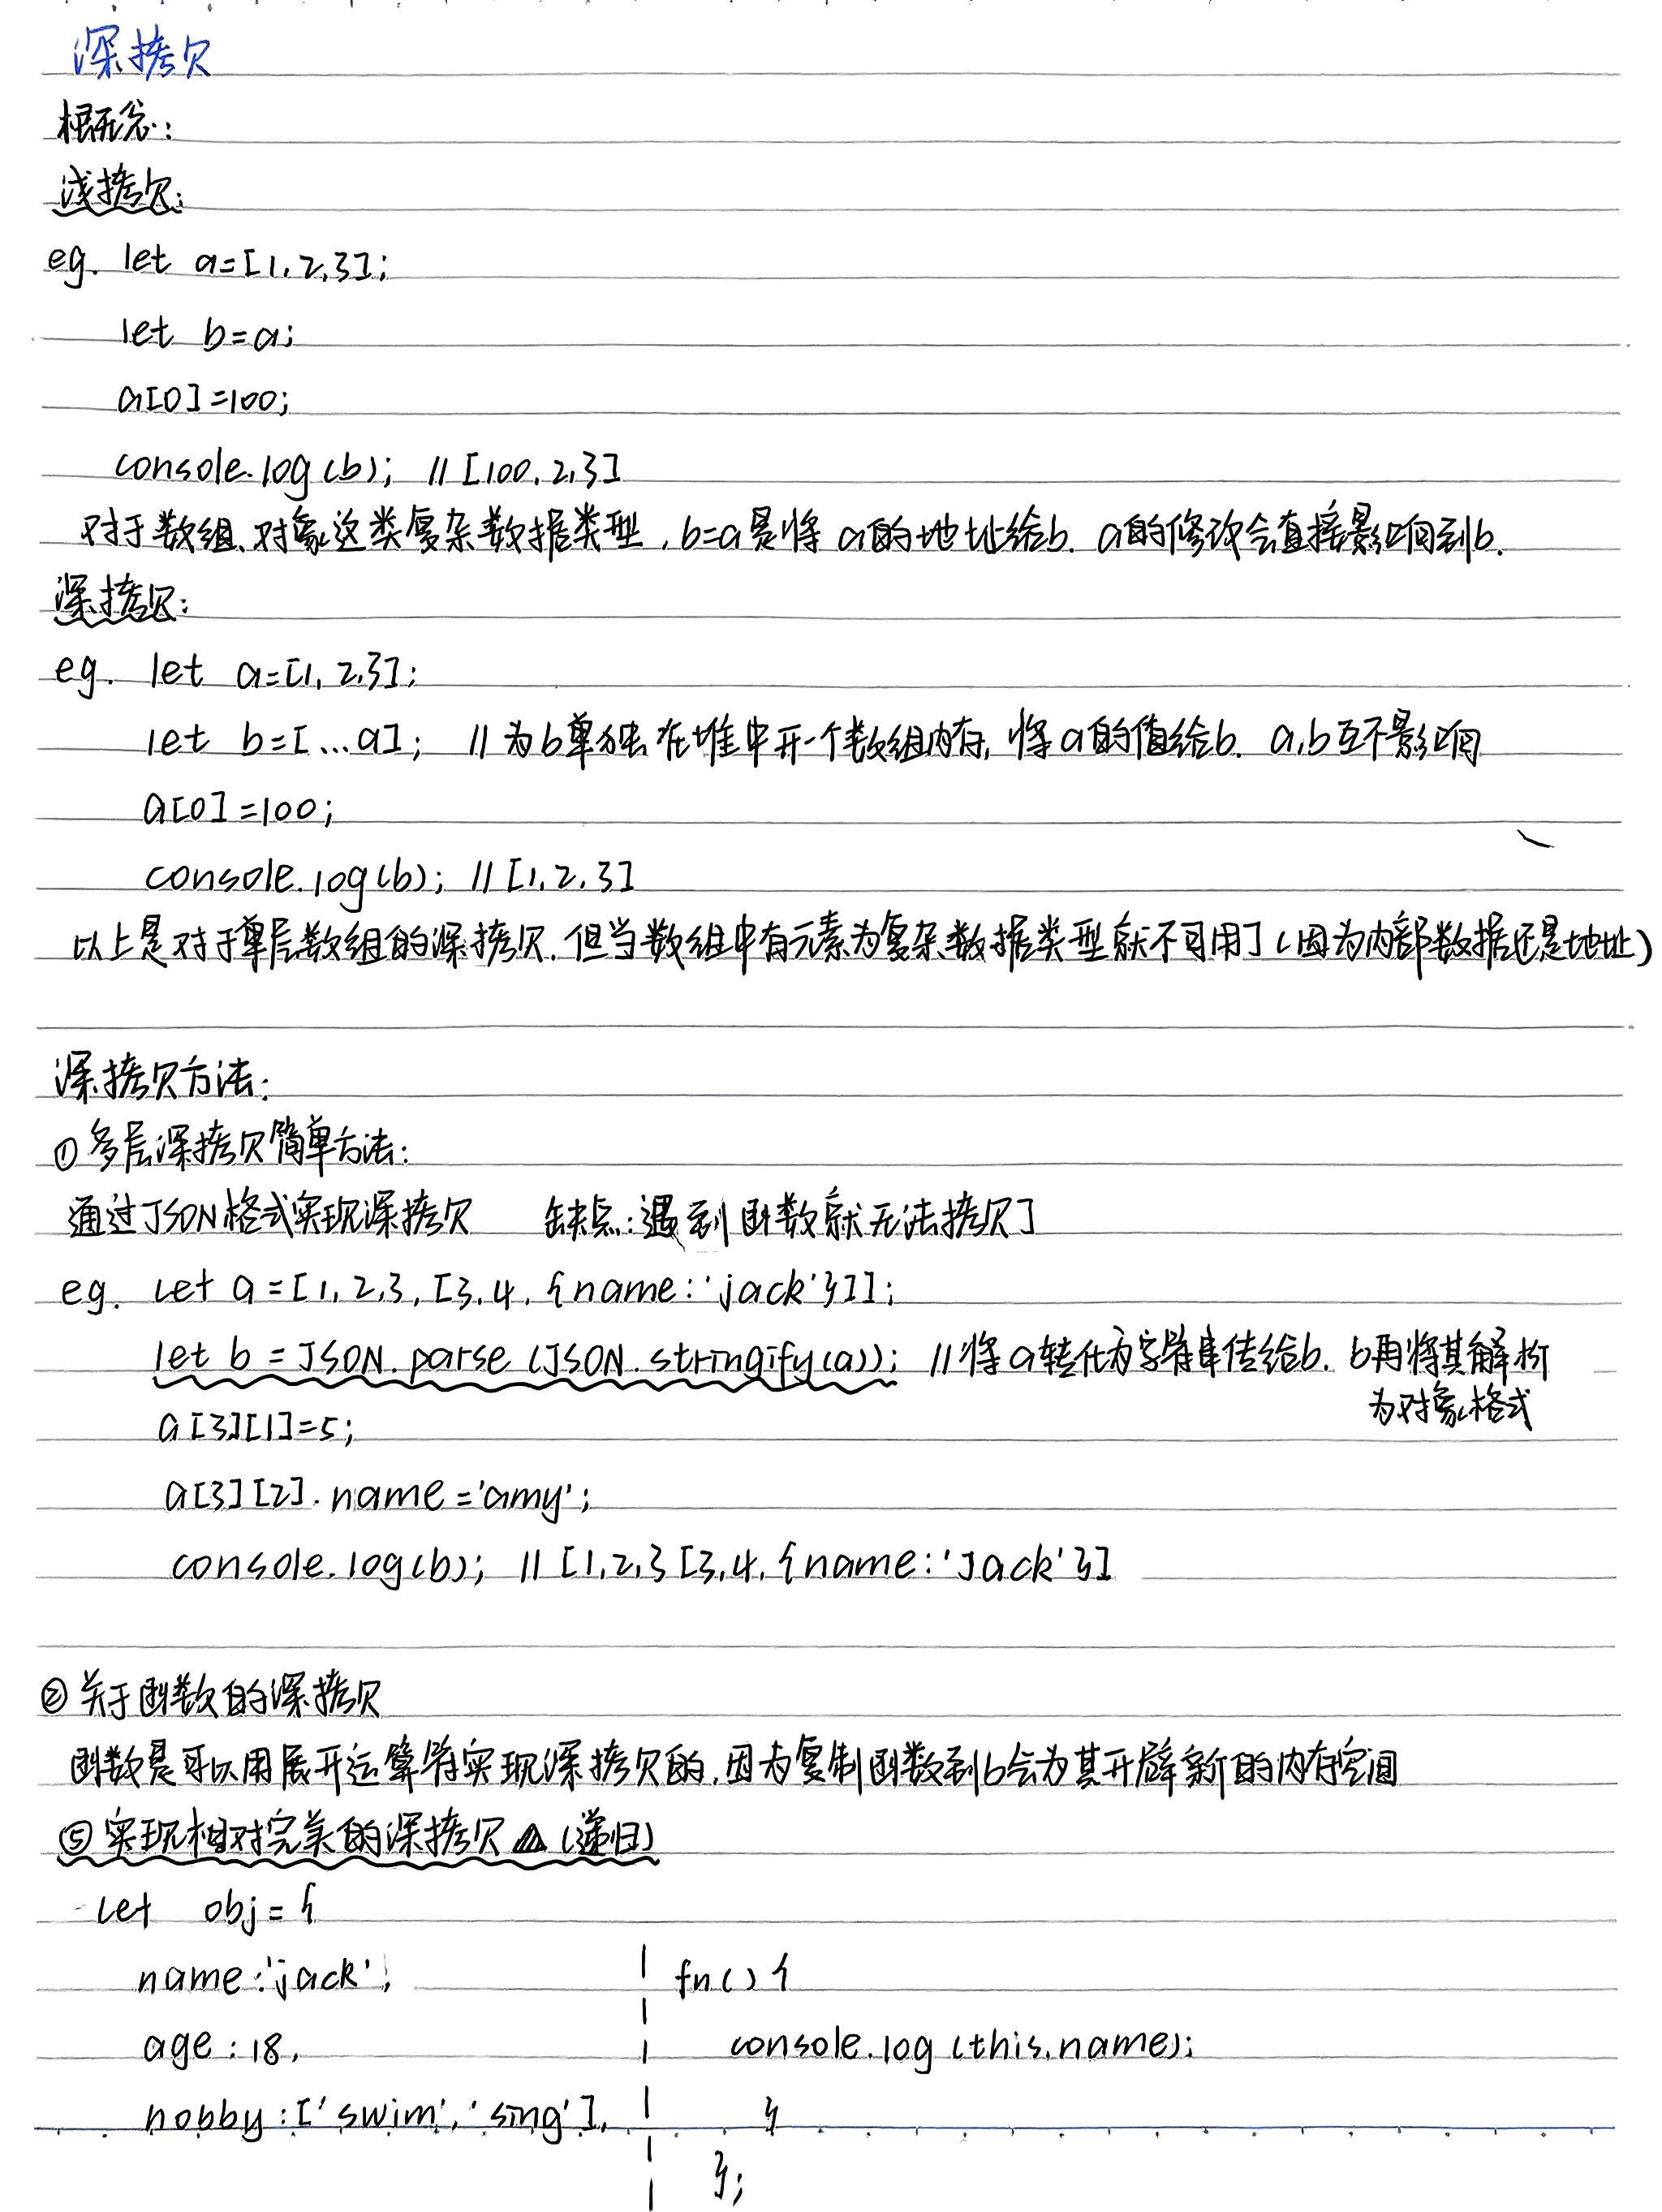 深拷贝
概念:
浅拷贝:
eg. let a=[1,2,3];
let b=a;
a[0]=100;
console.log(b); //[100,2,3]
对于数组、对象这类复杂数据类型,b=a是将 a的地址给b. a的修改会直接影响到b.
深拷贝:
eg. let a=[1,2,3];
let b=[...a]; //为b单独在堆中开一个数组内存,将a的值给b. a,b互不影响
a[0]=100;
console.log(b); //[1,2,3]
以上是对于单层数组的深拷贝.但当数组中有元素为复杂数据类型就不可用了(因为内部数据还是地址)
深拷贝方法:
①多层深拷贝简单方法:
通过JSON格式实现深拷贝 缺点:遇到函数就无法拷贝了
eg. let a=[1,2,3,[3,4,{name:'jack'}]];
let b=JSON.parse(JSON.stringify(a)); //将a转化为字符串传给b. b再将其解析
为对象格式
a[3][1]=5;
a[3][2].name='amy';
console.log(b); //[1,2,3[3,4,{name:'Jack'}]
②关于函数的深拷贝
函数是可以用展开运算符实现深拷贝的,因为复制函数到b会为其开辟新的内存空间
⑤实现相对完美的深拷贝△(递归)
let obj={
name:'jack',
age:18,
hobby:['swim','sing'],
fn(){
console.log(this.name);
}
};